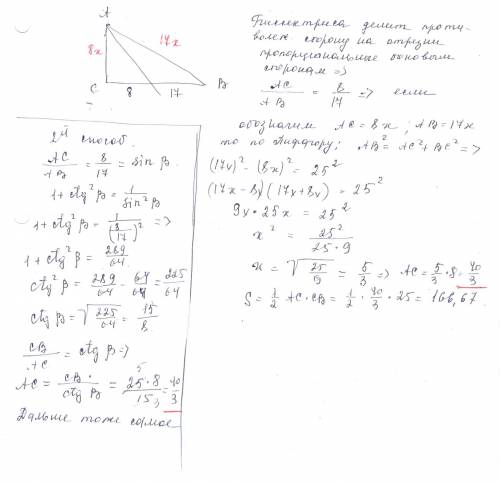 A
8x
17x
C
8
17
B
Биссектриса делит проти-
волеж сторону на отрезки
пропорциональные боковым
сторонам =>
AC/AB = 8/17 => если
обозначим AC = 8x ; AB = 17x
то по Пифагору; AB² = AC² + BC² =>
(17x)² - (8x)² = 25²
(17x - 8x)(17x + 8x) = 25²
9x · 25x = 25²
x² = 25²/(25 · 9)
x = √(25/9) = 5/3 => AC = 5/3 · 8 = 40/3
S = 1/2 AC · CB = 1/2 · 40/3 · 25 = 166,67
2й способ.
AC/AB = 8/17 = sin β
1 + ctg² β = 1/sin² β
1 + ctg² β = 1/(8/17)² =>
1 + ctg² β = 289/64
ctg² β = 289/64 - 64/64 = 225/64
ctg β = √(225/64) = 15/8
CB/AC = ctg β =>
AC = CB/ctg β = 25 · 8/15 = 40/3
5
3
Дальше тоже самое